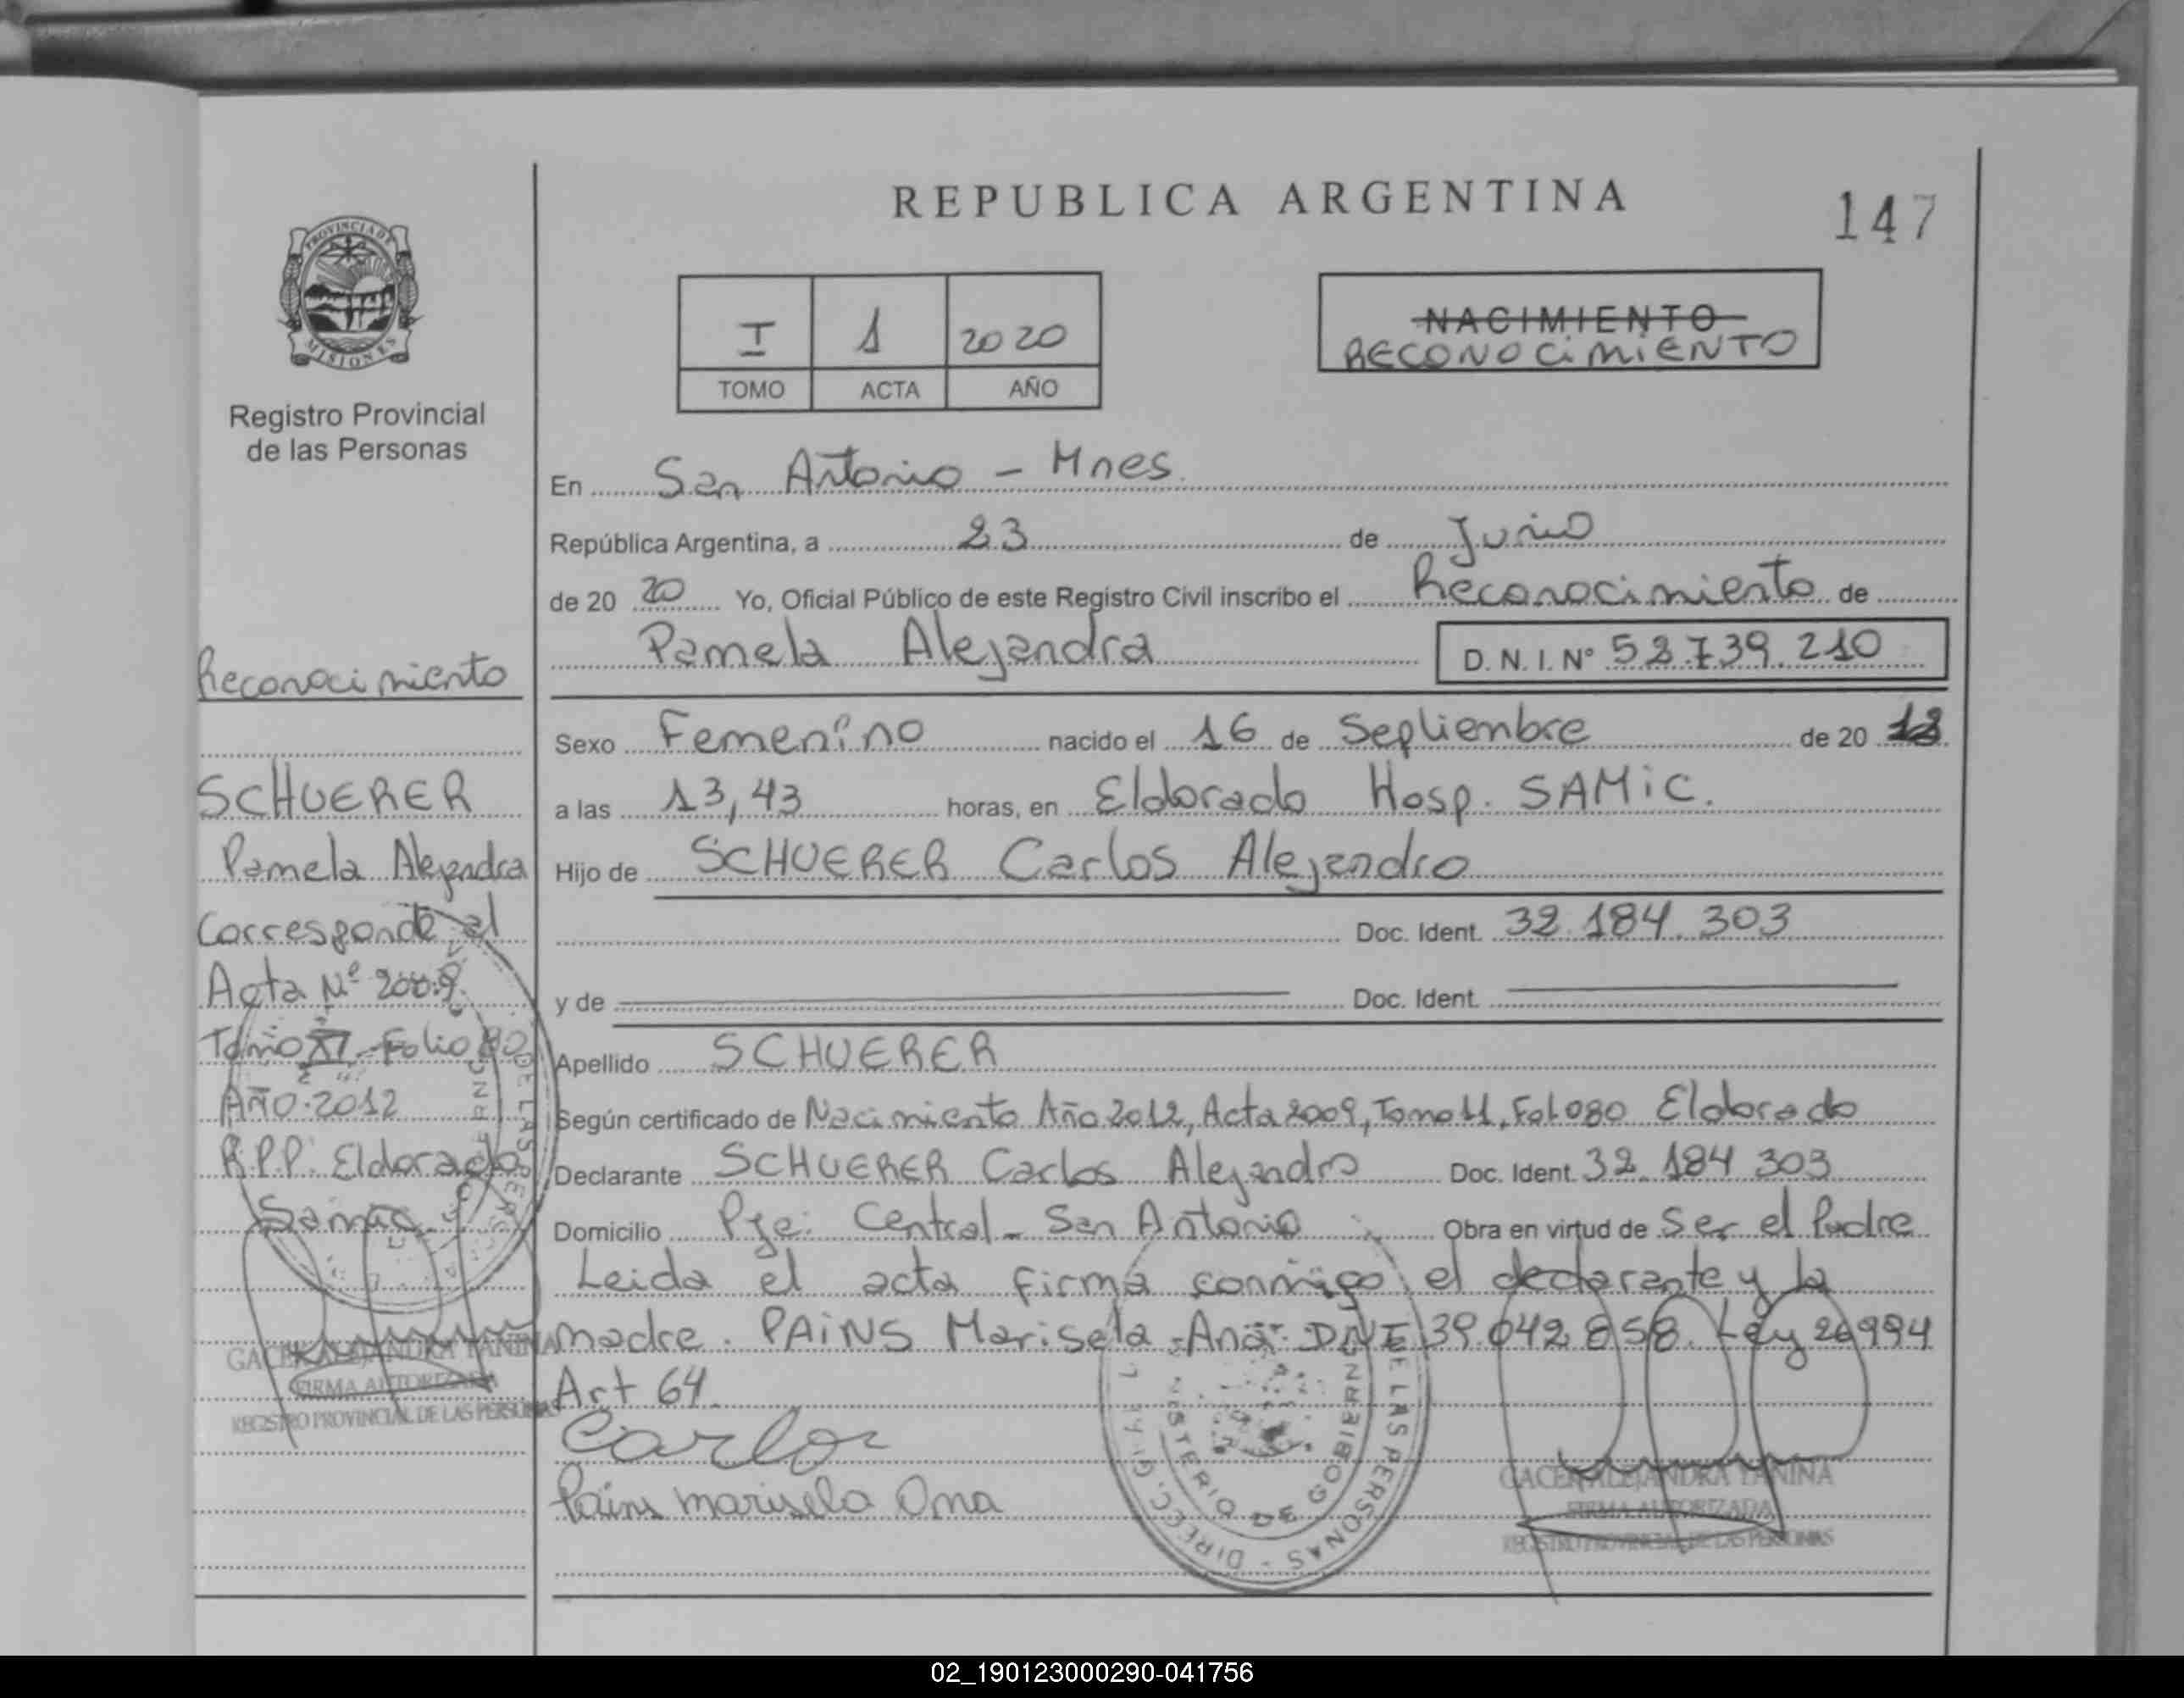 REPUBLICA ARGENTINA
147
PROVINCIA DE
MISIONES
Registro Provincial
de las Personas
I 1 2020
TOMO ACTA AÑO
NACIMIENTO
RECONOCIMIENTO
En San Antonio - Mnes.
República Argentina, a 23 de Junio
de 20 20 Yo, Oficial Público de este Registro Civil inscribo el Reconocimiento de
Pamela Alejandra D. N. I. Nº 52.739.210
Sexo Femenino nacido el 16 de Septiembre de 20 12
a las 13,43 horas, en Eldorado Hosp. SAMiC.
Hijo de SCHUERER Carlos Alejandro
Doc. Ident. 32.184.303
y de Doc. Ident.
Apellido SCHUERER
Según certificado de Nacimiento Año 2012, Acta 2009, Tomo 11, Fol 080 Eldorado
Declarante SCHUERER Carlos Alejandro Doc. Ident. 32.184 303
Domicilio Pje: Central - San Antonio Obra en virtud de Ser el Padre
Leida el acta firma conmigo el declarante y la
madre. PAiNS Marisela Ana DNI 39.042.858. Ley 26994
Art 64.
Carlos
Pains marisela Ana
Reconocimiento
SCHUERER
Pamela Alejandra
Corresponde al
Acta Nº 2009
Tomo XI - Folio 80
Año 2012
R.P.P. Eldorado
Samic
GACEK ALEJANDRA YANINA
FIRMA AUTORIZADA
REGISTRO PROVINCIAL DE LAS PERSONAS
MINISTERIO DE GOBIERNO
DE LAS PERSONAS - DIRECC. GRAL
GACEK ALEJANDRA YANINA
FIRMA AUTORIZADA
REGISTRO PROVINCIAL DE LAS PERSONAS
02_190123000290-041756